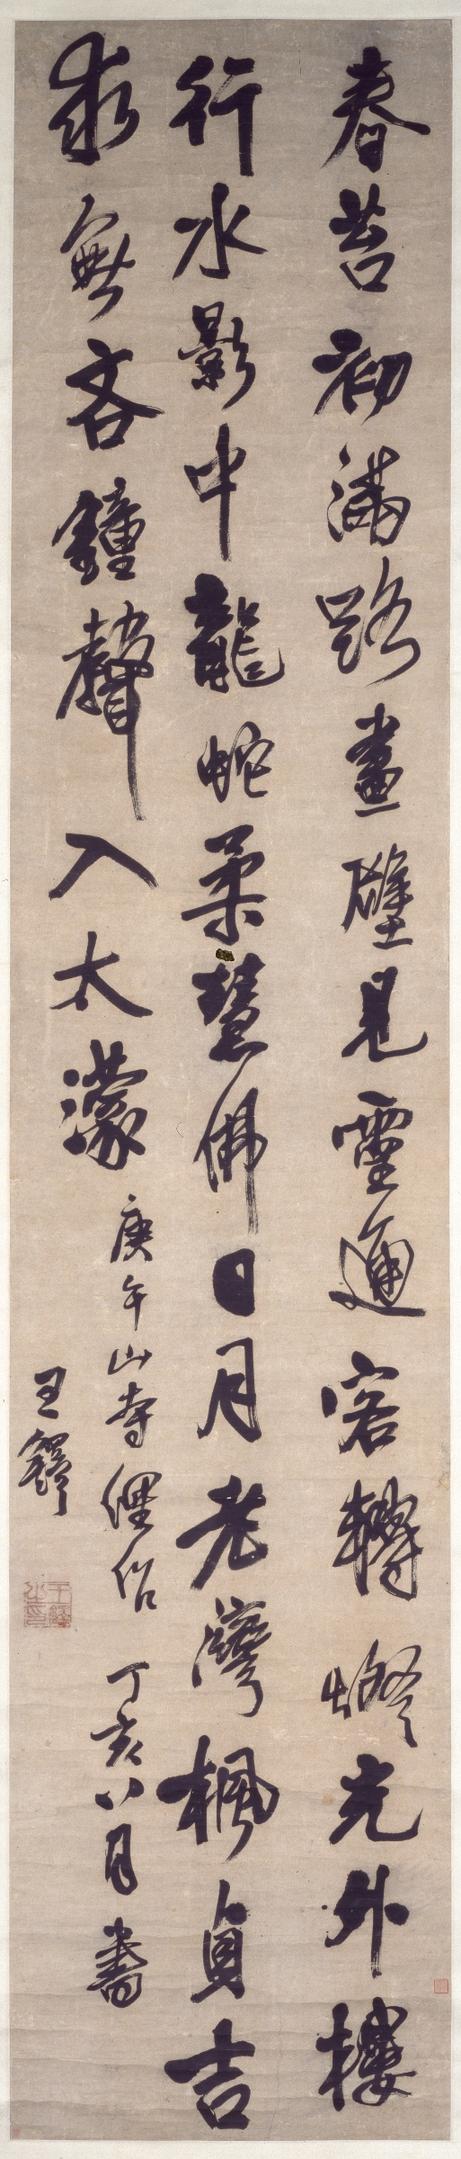 春苔初滿路畫壁見靈通客轉燈光外樓
行水影中龍蛇柔慧佛日月老灣楓貞吉
求無吝鐘聲入太濛
庚午山寺俚俗 丁亥八月書
王鐸
王鐸之印